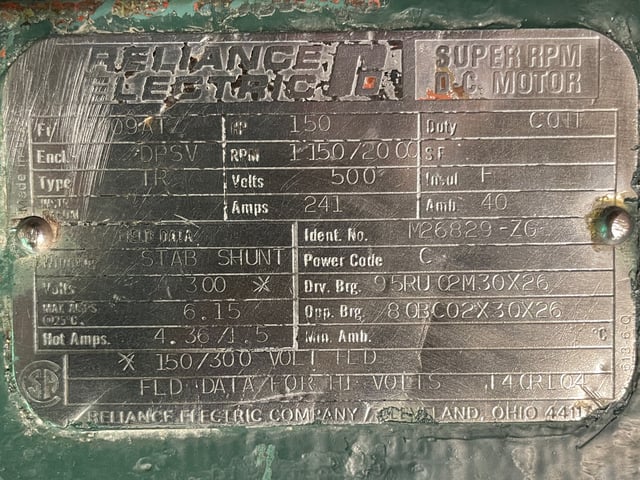 RELIANCE ELECTRIC
SUPER RPM D.C. MOTOR
HP 150 Duty CONT
Encl. DPSV RPM 1150/2000 S F
Type TR Volts 500 Insul F
Amps 241 Amb 40
FIELD DATA Ident. No. M26829-ZG
STAB SHUNT Power Code C
Volts 300 * Drv. Brg. 95RU02M30X26
MAX. AMPS @25°C. 6.15 Opp. Brg. 80BC02X30X26
Hot Amps. 4.36/1.5 Min. Amb. °C
* 150/300 VOLT FLD
FLD DATA FOR HI VOLTS
RELIANCE ELECTRIC COMPANY / CLEVELAND, OHIO